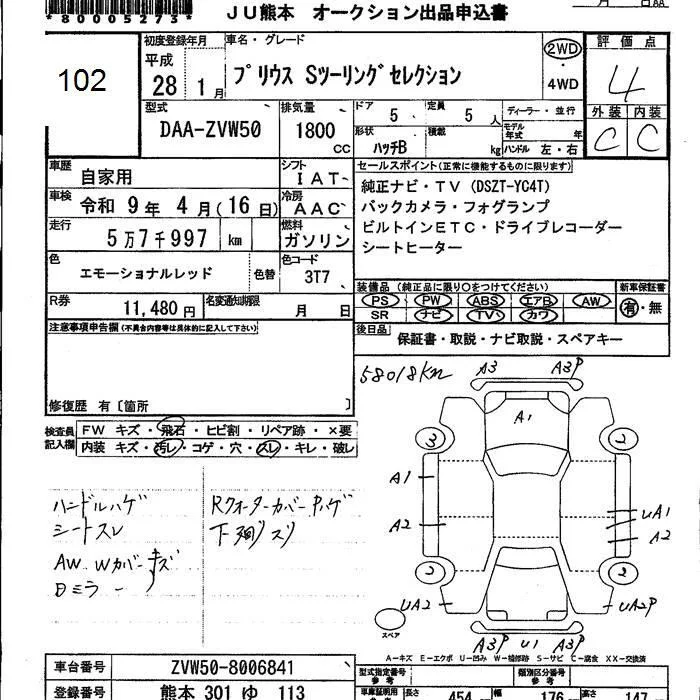 *80005273*
JU熊本 オークション出品申込書
月 日AA
102
初度登録年月 車名・グレード
平成 28 1月
プリウス Sツーリングセレクション
2WD ・ 4WD
評価点
4
外装 内装
C C
型式 排気量 ドア 5 定員 5人 ディーラー・並行
DAA-ZVW50 1800cc 形状 ハッチB 積載 kg モデル年式 年 ハンドル 左・右
車歴 自家用 シフト IAT
セールスポイント(正常に機能するものに限ります)
車検 令和 9年 4月(16日) 冷房 AAC
純正ナビ・TV (DSZT-YC4T)
バックカメラ・フォグランプ
走行 5万7千997 km 燃料 ガソリン
ビルトインETC・ドライブレコーダー
シートヒーター
色 エモーショナルレッド 色替 色コード 3T7
装備品(純正品に限り○をつけてください) 新車保証書
PS PW ABS エアB AW 有・無
SR ナビ TV カワ
R券 11,480円 名変通知期限 月 日
後日品 保証書・取説・ナビ取説・スペアキー
注意事項申告欄(不具合内容等は具体的に記入して下さい)
修復歴 有〔箇所 〕
58018km
検査員記入欄
FW キズ・飛石・ヒビ割・リペア跡・×要
内装 キズ・汚レ・コゲ・穴・スレ・キレ・破レ
ハンドルハゲ
シートスレ
AW Wカバーキズ
Dミラー 〃
Rクォーターカバー Pハゲ
下廻リスリ
A3 A3P
A1
3 2
A1
UA1
A2 A2
2 2
UA2 UA2P
スペア
A3P U1 A3P
A-キズ E-エクボ U-凹み W-補修跡 S-サビ C-腐食 XX-交換済
車台番号 ZVW50-8006841
型式指定番号 参考 類別区分番号 参考
登録番号 熊本 301 ゆ 113
長さ 454 幅 176 高さ 147